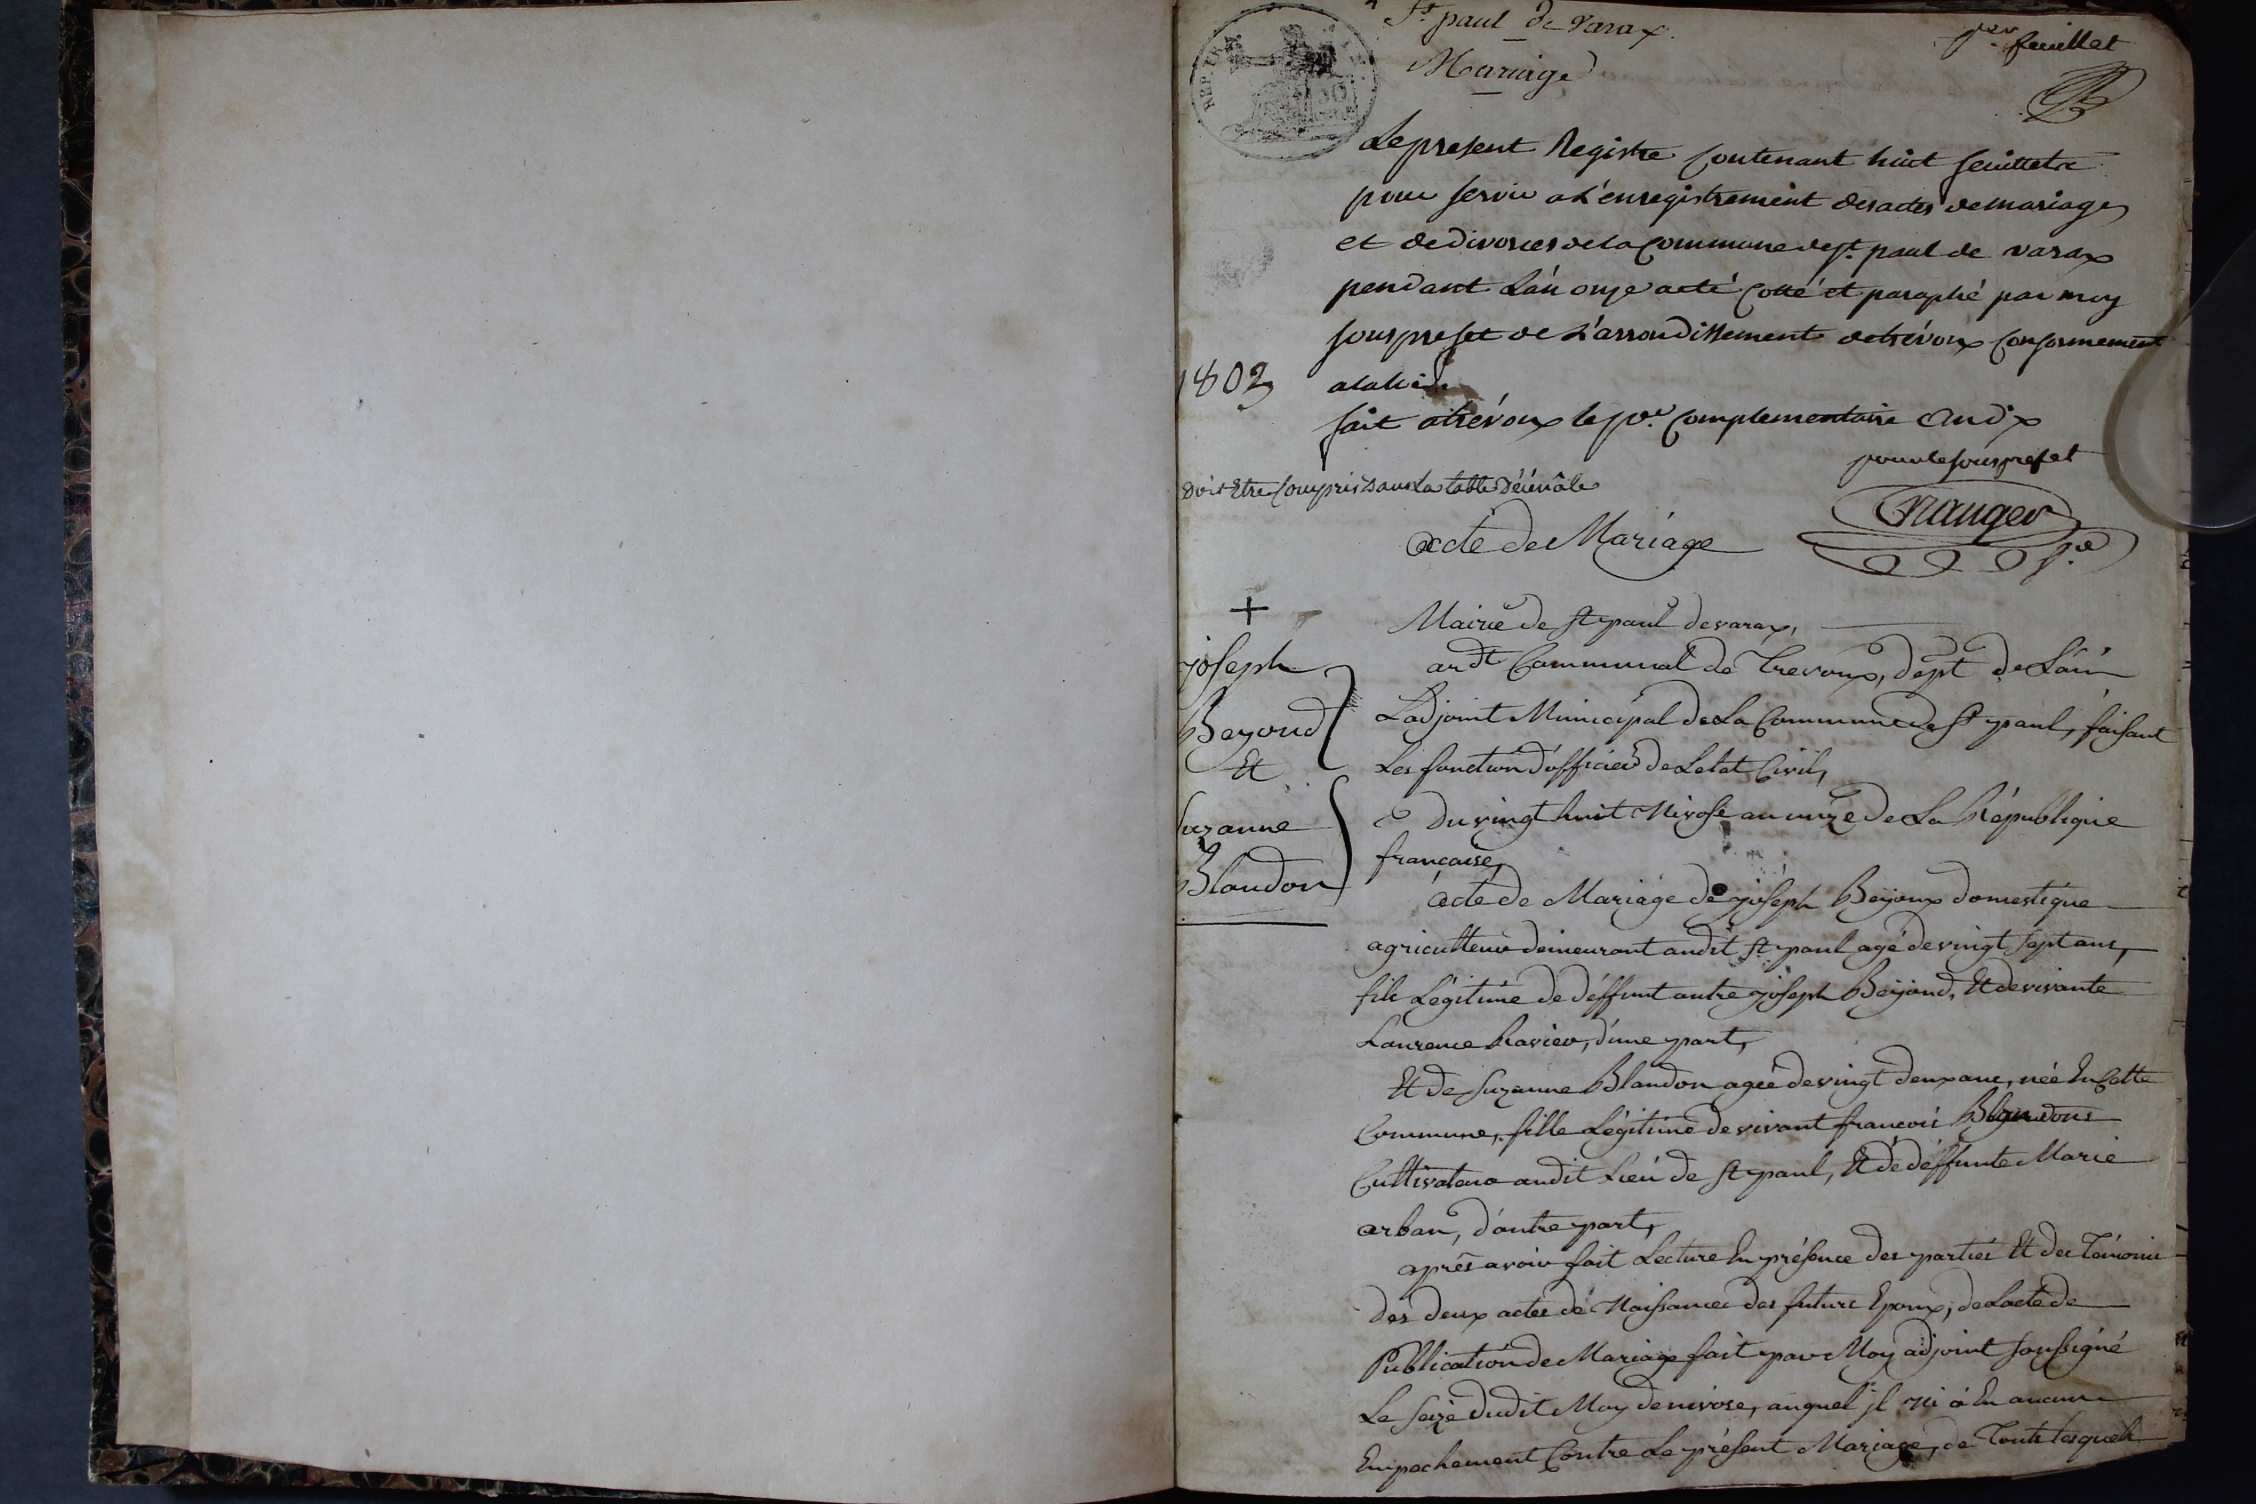 St. paul de Varax.
per feuillet
Mariage
REP. FRA.
Le present Registre Contenant huit feuillets
pour servir a L'enregistrement des actes de mariages
et de divorces de la Commune de st. paul de varax
pendant L'an onze a eté Cotté et paraphé par moy
sous prefet de L'arrondissement de trévoux Conformement
1802
a la loi
fait a trévoux le pr. Complementaire an dix
pour le sous prefet
doit Etre Compris dans La table Décénale
acte de Mariage
+
Mairie de st paul de varax,
ardt Communal de Trevoux, dept de L'ain
joseph
Beyoud
Et
Suzanne
Blandon
L'adjoint Municipal de La Commune de St paul, faisant
Les fonction d'officier de Letat Civil,
du vingt huit Nivose an onze de La République
francaise,
acte de Mariage de joseph Beyoux domestique
agriculteur demeurant audit st paul agé de vingt sept ans,
fils Légitime de déffunt autre joseph Beyoud, Et de vivante
Laurence Ravier, d'une part,
Et de Suzanne Blandon agée de vingt deux ans, née En Cette
Commune, fille Légitime de vivant francois Blandons
Cultivateur audit Lieu de St paul, Et de déffunte Marie
arban, d'autre part,
aprés avoir fait Lecture En présence des parties Et des Témoins
des deux actes de Naissances des futurs Epoux, de Lacte de
Publication de Mariage fait par Moy adjoint soussigné
Le seize dudit Moy de nivose, auquel jl n'i à Eu aucun
Empechement Contre Le présent Mariage, de Touts lesquels